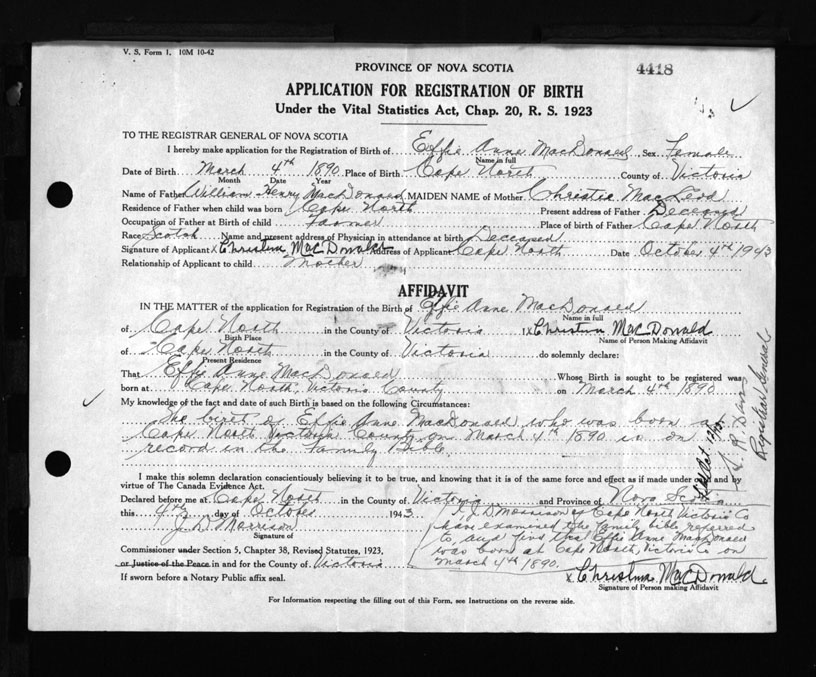 V. S. Form 1. 10M 10-42
PROVINCE OF NOVA SCOTIA
4418
APPLICATION FOR REGISTRATION OF BIRTH
Under the Vital Statistics Act, Chap. 20, R. S. 1923
TO THE REGISTRAR GENERAL OF NOVA SCOTIA
I hereby make application for the Registration of Birth of Effie Anne MacDonald, Sex Female
Name in full
Date of Birth March 4th 1890 Place of Birth Cape North County of Victoria
Month Date Year
Name of Father William Henry MacDonald MAIDEN NAME of Mother Christie MacLeod
Residence of Father when child was born Cape North Present address of Father Deceased
Occupation of Father at Birth of child Farmer Place of birth of Father Cape North
Race Scotch Name and present address of Physician in attendance at birth Deceased
Signature of Applicant x Christina MacDonald Address of Applicant Cape North Date October 4th 1943
Relationship of Applicant to child Mother
AFFIDAVIT
IN THE MATTER of the application for Registration of the Birth of Effie Anne MacDonald
Name in full
of Cape North in the County of Victoria I x Christina MacDonald
Birth Place Name of Person Making Affidavit
of Cape North in the County of Victoria do solemnly declare:
Present Residence
That Effie Anne MacDonald Whose Birth is sought to be registered was
born at Cape North, Victoria County on March 4th 1890
My knowledge of the fact and date of such Birth is based on the following Circumstances:
The birth of Effie Anne MacDonald who was born at
Cape North Victoria County on March 4th 1890 is on
record in the Family Bible.
I make this solemn declaration conscientiously believing it to be true, and knowing that it is of the same force and effect as if made under and by
virtue of The Canada Evidence Act.
Declared before me at Cape North in the County of Victoria and Province of Nova Scotia
this 4th day of October 1943
J. D. Morrison
Signature of
I, J D Morrison of Cape North Victoria Co
have examined the family bible referred
to, and find that Effie Anne MacDonald
was born at Cape North, Victoria Co on
March 4th 1890.
Commissioner under Section 5, Chapter 38, Revised Statutes, 1923,
or Justice of the Peace in and for the County of Victoria
If sworn before a Notary Public affix seal.
x Christina MacDonald
Signature of Person making Affidavit
For Information respecting the filling out of this Form, see Instructions on the reverse side.
Registrar General